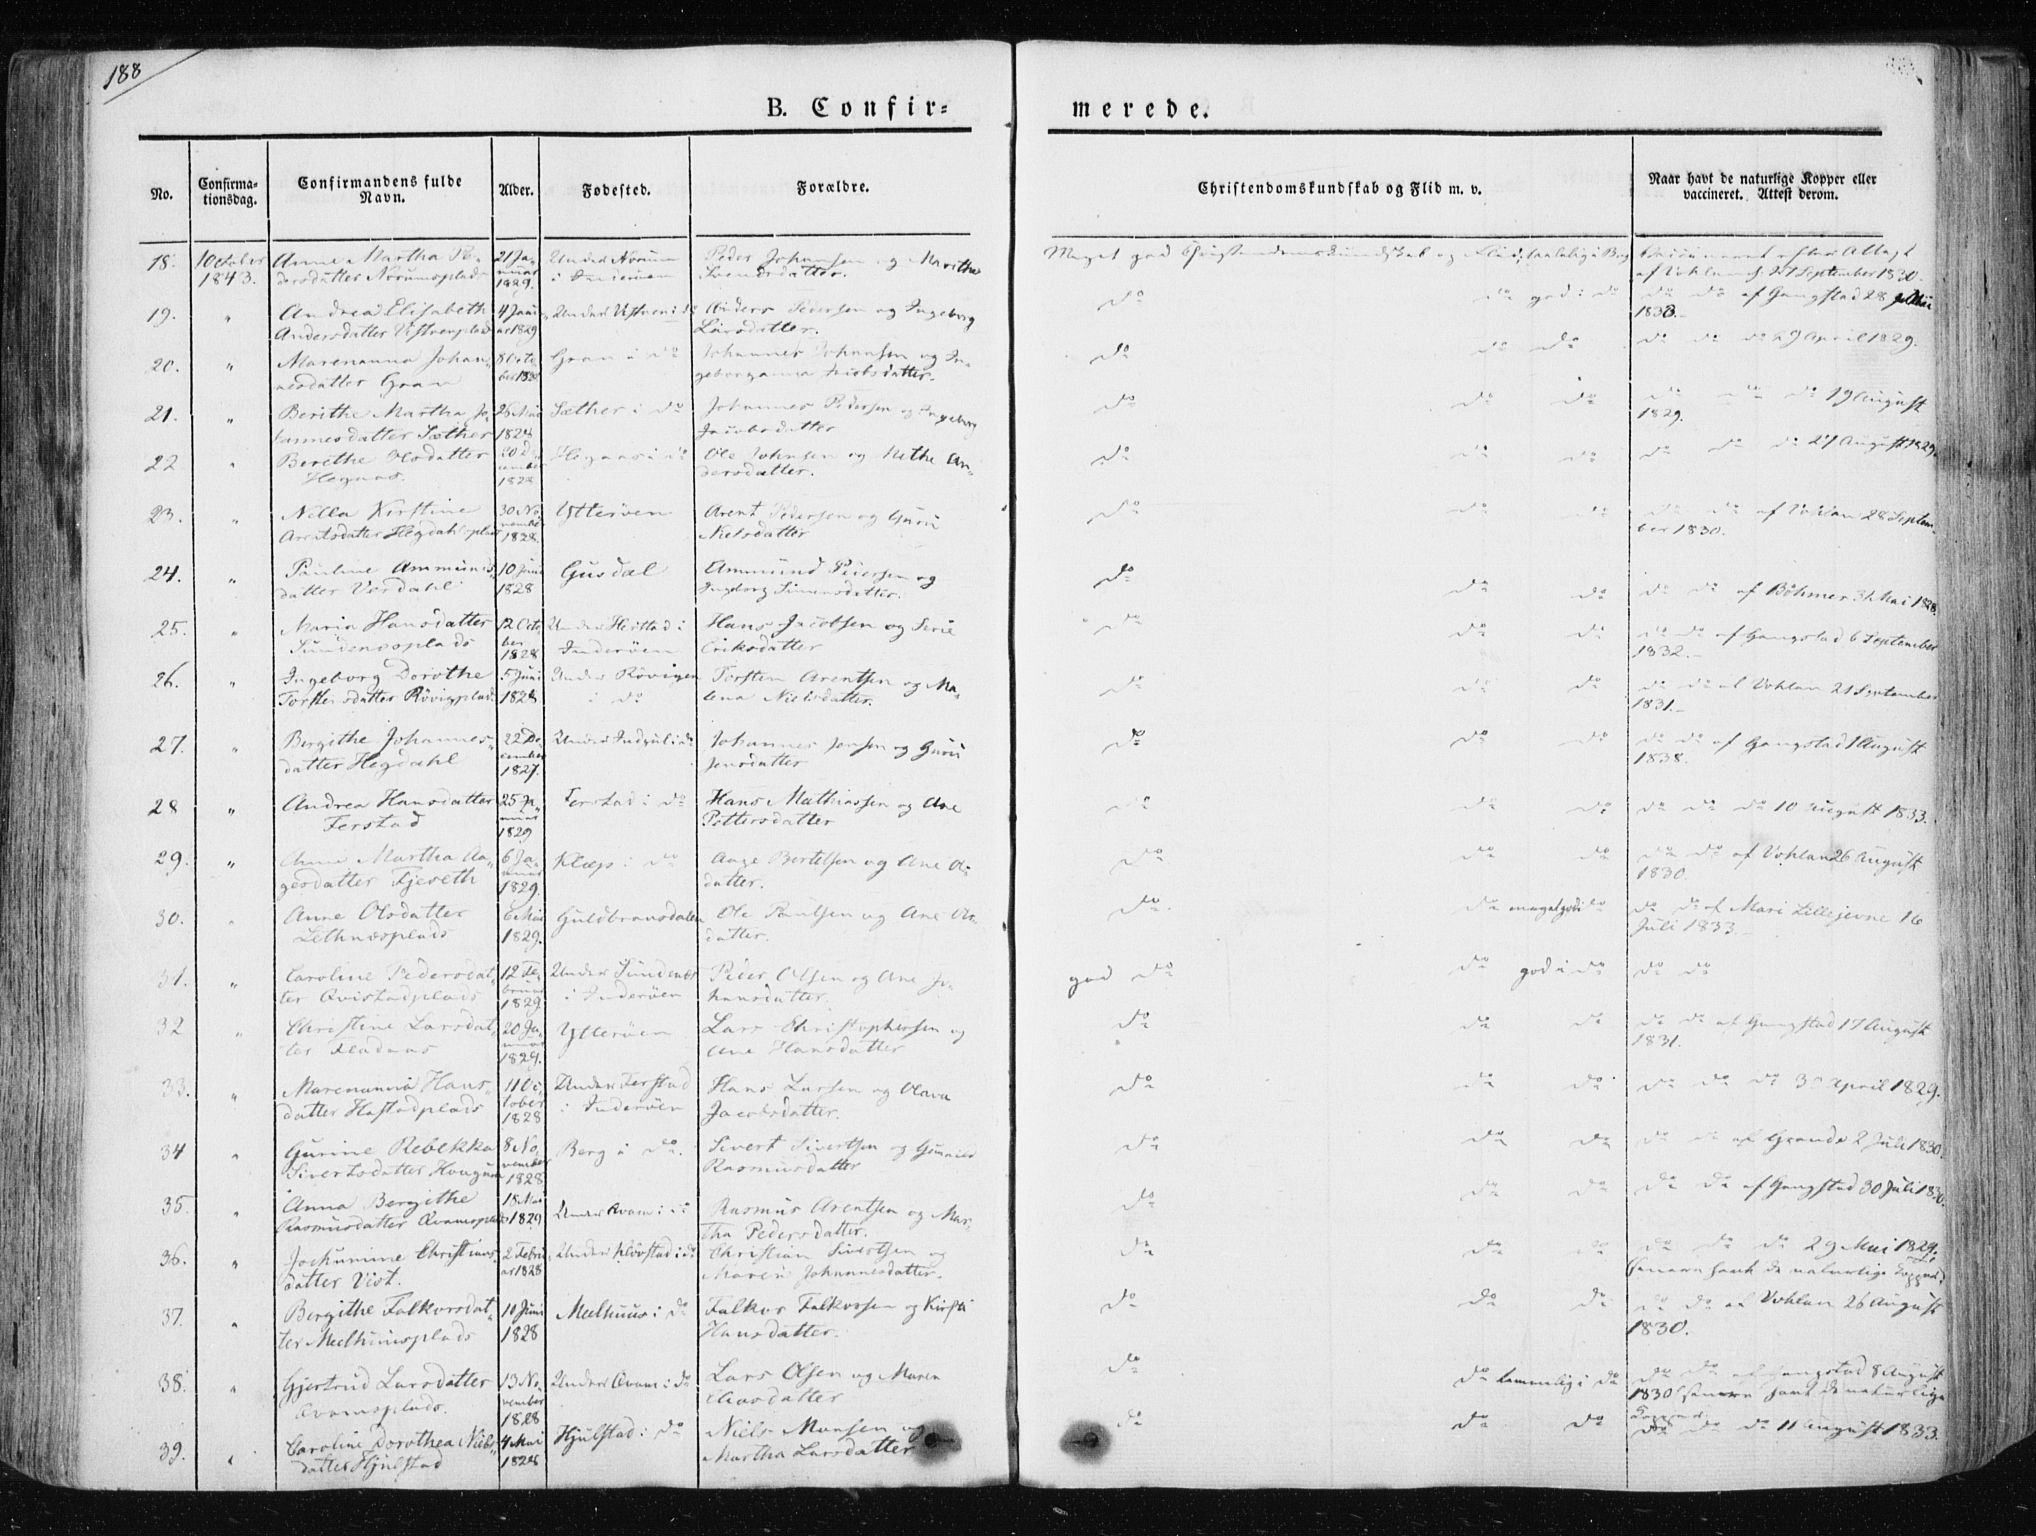 188
B. Confir=
merede.
No.
Confirma-
tionsdag.
Confirmandens fulde
Navn.
Alder.
Fødested.
Forældre.
Christendomskundskab og Flid m. v.
Naar havt de naturlige Kopper eller
vaccineret. Attest derom.
18. 10 October Anne Martha Pe- 21 Ja- Under Norum Peder Johansen og Marithe
1843. dersdatter Norumsplads nuar i Inderøen Svendsdatter.
1829.
Meget god Christendomskundskab og Flid,
af Vohlan d. 27 September 1830.
19. " Andrea Elisabeth 4 Janu- Anders Pedersen og Ingeborg
Andersdatter ar 1829 Larsdatter.
do god i do do do af Gangstad 28
20. " Marenanna Johan- 8 Octo- Gran i do Johannes Johansen og In-
nesdatter Gran ber geboranna Jacobsdatter.
do do do do do do 29 April 1829.
21. " Berithe Martha Jo- Sæther i do Johannes Pedersen og Ingeborg
hannesdatter Sæther 1828 Jacobsdatter
do do do do do do 19 August
1829.
22 " Berethe Olsdatter Hegaas i do Ole Johnsen og Methe An-
Hegaas. dersdatter.
do do do do do do 27 August 1829.
23. " Nella Kirstine 30 No- Ytterøen Arent Pedersen og Guru
Arentsdatter Hegdahlsplads vember Nielsdatter
1828.
do do do do do af Vohlan 28 Septem-
ber 1830.
24. " Pauline Ammunds- 10 Juni Gusdal Ammund Pedersen og
datter Verdahl 1828 Ingeborg Simonsdatter.
do do do do do af Böhmer 31 Mai 1828.
25. " Maria Hansdatter 12 Octo- Under Heistad i Hans Jacobsen og Serie
Sundnesplads ber Inderøen Eriksdatter
1828
do do do do do af Gangstad 6 September
1832.
26. " Ingeborg Dorothe 5 Juni Under Rövigen Torsten Arentsen og Ma-
Torstensdatter Rövigplads 1828 i do lena Nielsdatter.
do do do do do af Vohlan 21 September
1831.
27. " Bergithe Johannes- 22 De- Johannes Jensen og Guru
datter Hegdahl cember Jensdatter
1827.
do do do do do af Gangstad 1 August
1838.
28 " Andrea Hansdatter 25 Ja- Ferstad i do Hans Mathiassen og Ane
Ferstad nuar Pettersdatter
1829
do do do do do do 10 August 1833.
29. " Anne Martha Aa- 6 Ja- Klæp i do Aage Bertelsen og Ane Ols-
gesdatter Fjeseth nuar datter.
1829.
do do do do do af Vohlan 26 August
1830.
30. " Anne Olsdatter 6 Mai Guldbransdalen Ole Paulsen og Ane Ols-
Lethnesplads 1829. datter.
do do meget god i do do do af Mari Lillejevne 16
Juli 1833.
31. " Caroline Pedersdat- 12 Fe- Under Sundnes Peder Olsen og Ane Jo-
ter Qvistadplads bruar i Inderøen hansdatter.
1829
god do do god i do do do
32 " Christine Larsdat- 20 Ja- Ytterøen Lars Christophersen og
ter Fladaas nuar Ane Hansdatter
1829.
do do do do do af Gangstad 17 August
1831.
33. " Marenanna Hans- 11 Oc- Under Ferstad Hans Larsen og Olava
datter Hastadplads tober i Inderøen Jacobsdatter.
1828
do do do do do do 30 April 1829.
34 " Gurine Rebekka 8 No- Berg i do. Sivert Sivertsen og Gunnild
Sivertsdatter Haugum vember Rasmusdatter
1828
do do do do do af Grande 2 Juli 1830.
35. " Anna Bergithe 18 Mai Under Qvam i do Rasmus Arentsen og Mar-
Rasmusdatter Qvamsplads 1829 tha Pedersdatter.
do do do do do af Gangstad 30 Juli 1830.
36. " Jockumine Christians- 2 Febru- Under Kløvstad i do Christian Sivertsen og
datter Vist. ar 1828 Maren Johannesdatter.
do do do do do do 29 Mai 1829.
senere havt de naturlige Kopper.
37. " Bergithe Falkorsdat- 10 Juni Melhuus i do Falkor Falkorsen og Kirsti
ter Melhuusplads 1828 Hansdatter.
do do do do do af Vohlan 26 August
1830.
38. " Gjertrud Larsdatter 13 No- Under Qvam i do Lars Olsen og Maren
Qvamsplads. vember Clasdatter
1828
do do temmelig i do do do af Gangstad 8 August
1830 senere havt de naturlige
Kopper.
39. " Caroline Dorothea Niels- 4 Mai Hjulstad i do Niels Monsen og
datter Hjulstad 1828 Martha Larsdatter
do do do do do do 11 August 1833.